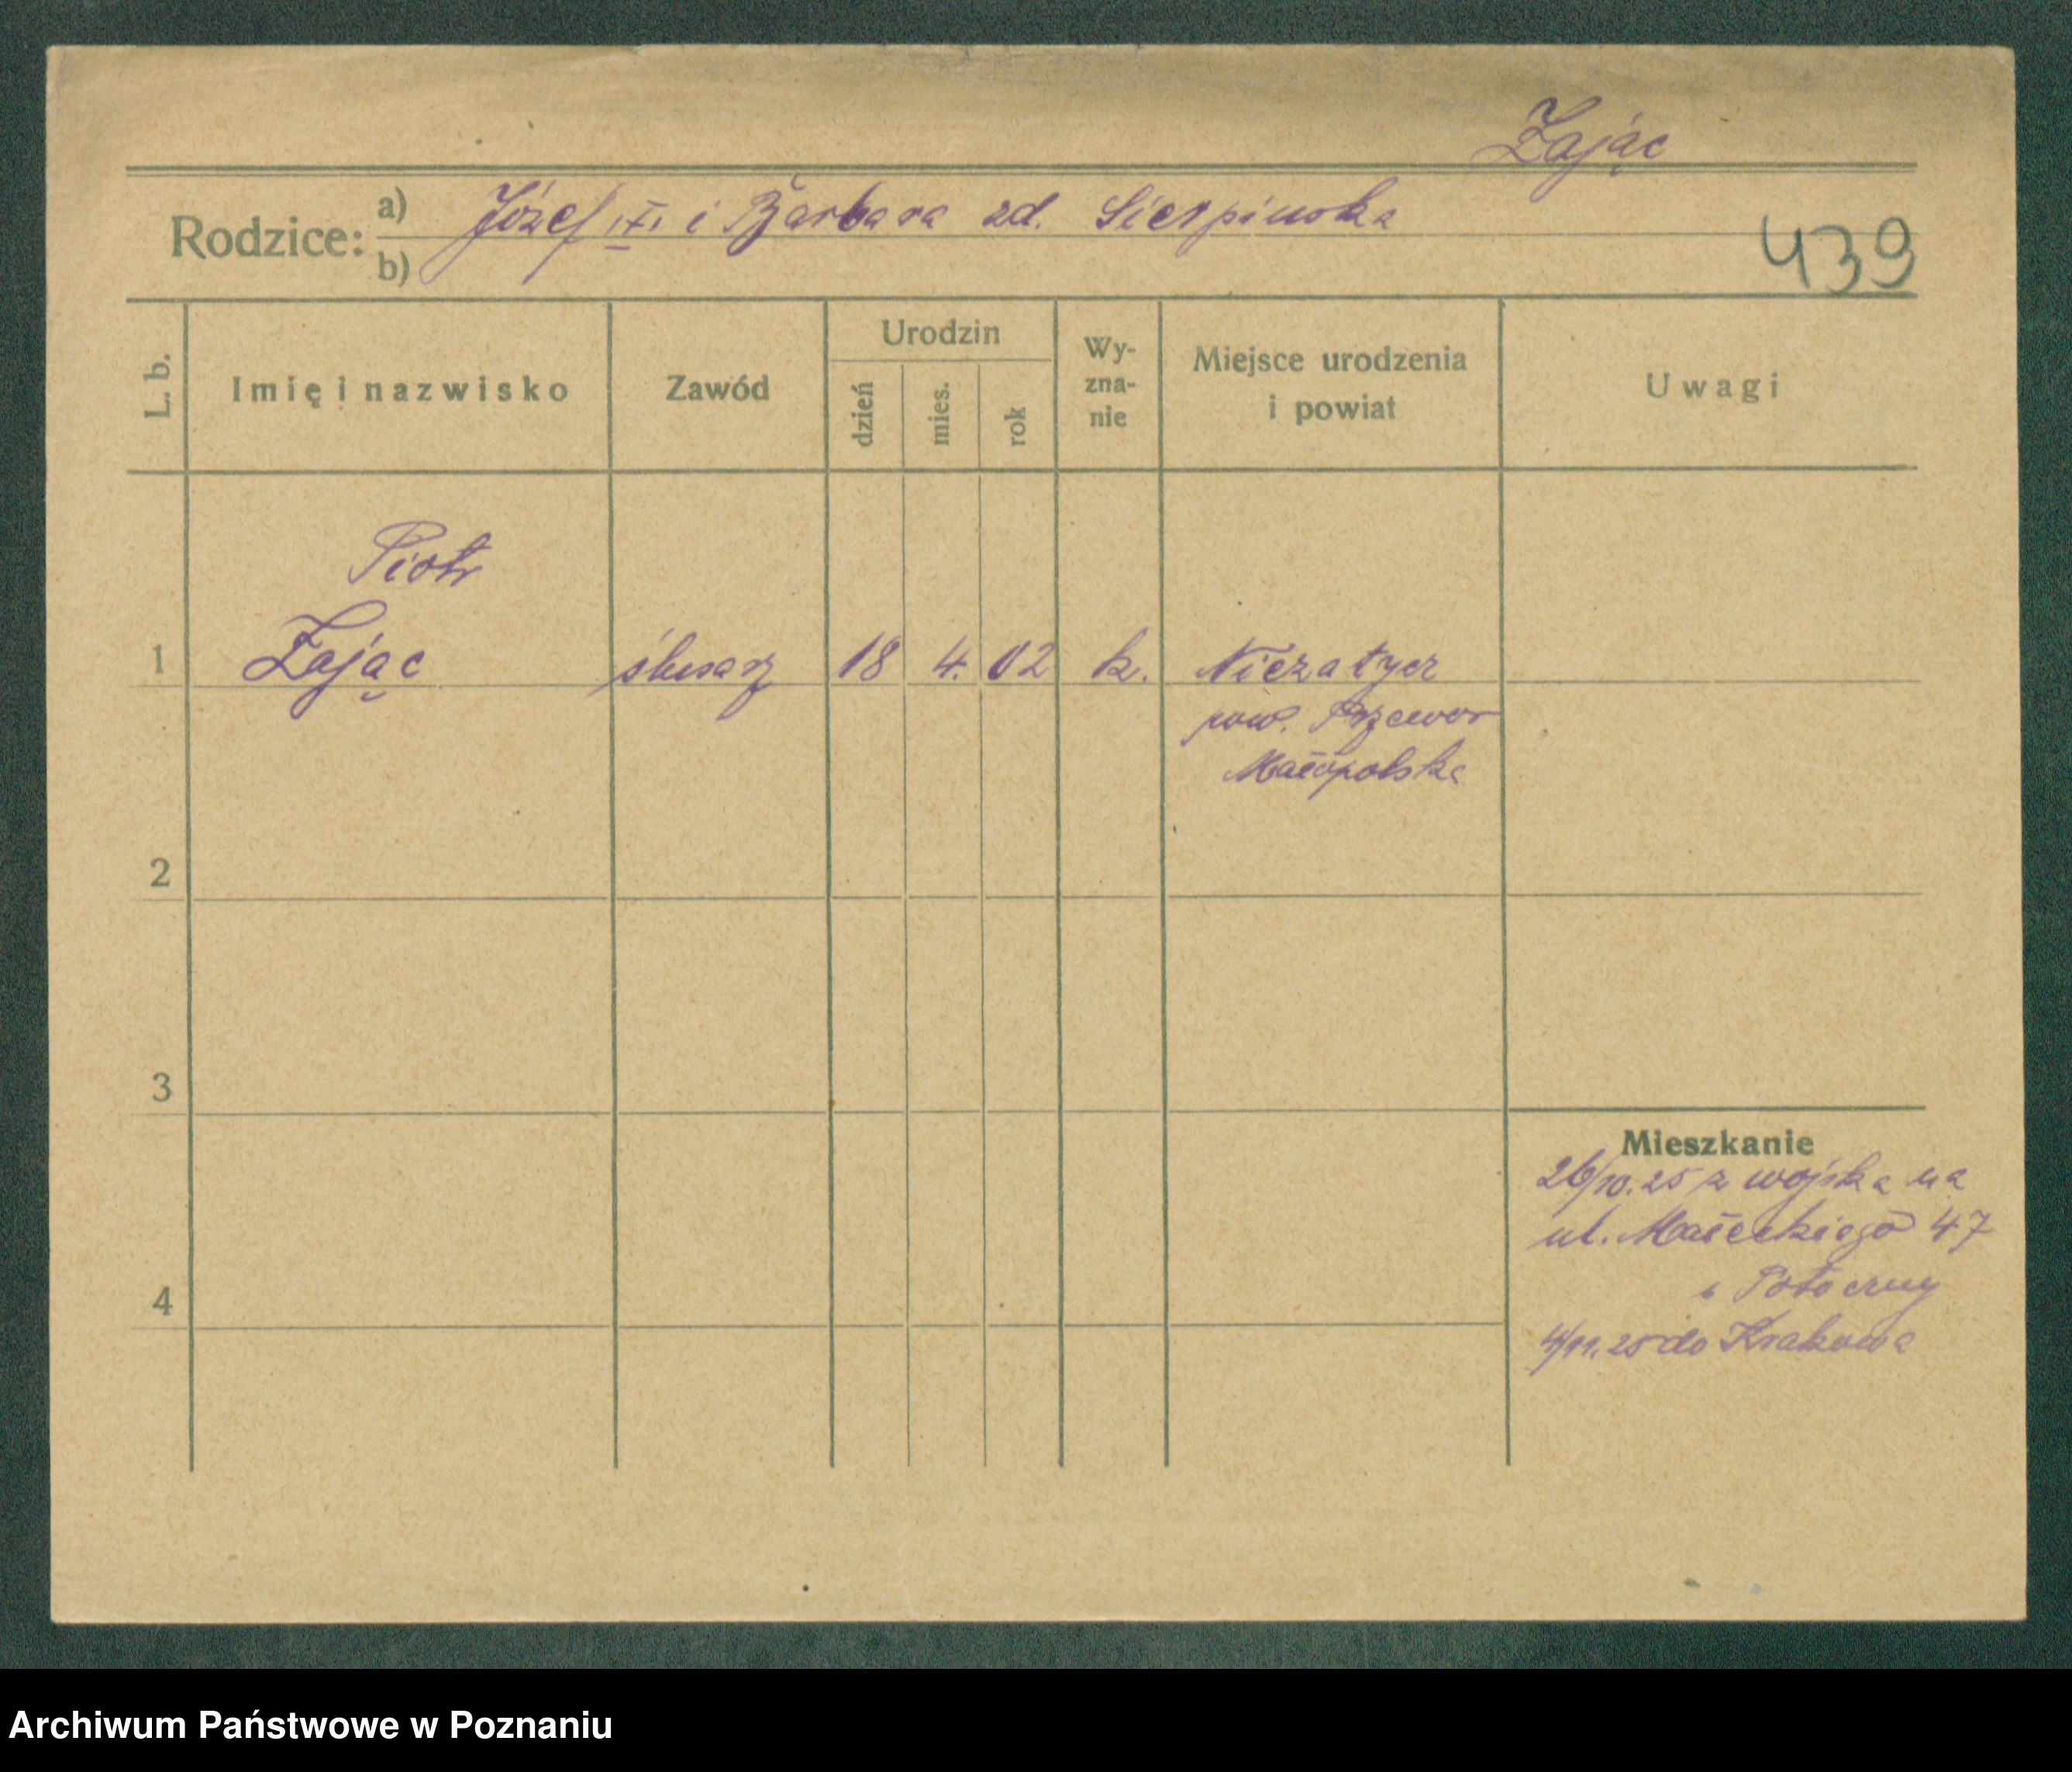 Zając
Rodzice: a) Józef i Barbara zd. Sierpinska
b)
439
L. b. Imię i nazwisko Zawód Urodzin dzień mies. rok Wy-zna-nie Miejsce urodzenia i powiat Uwagi
Piotr
1 Zając ślusarz 18 4. 02 k. Niezatycz
pow. Przewor
Małopolska
2
3
Mieszkanie
26/10.25 z wojska na
ul. Małeckiego 47
4
4/11.25 do Krakowa
Archiwum Państwowe w Poznaniu